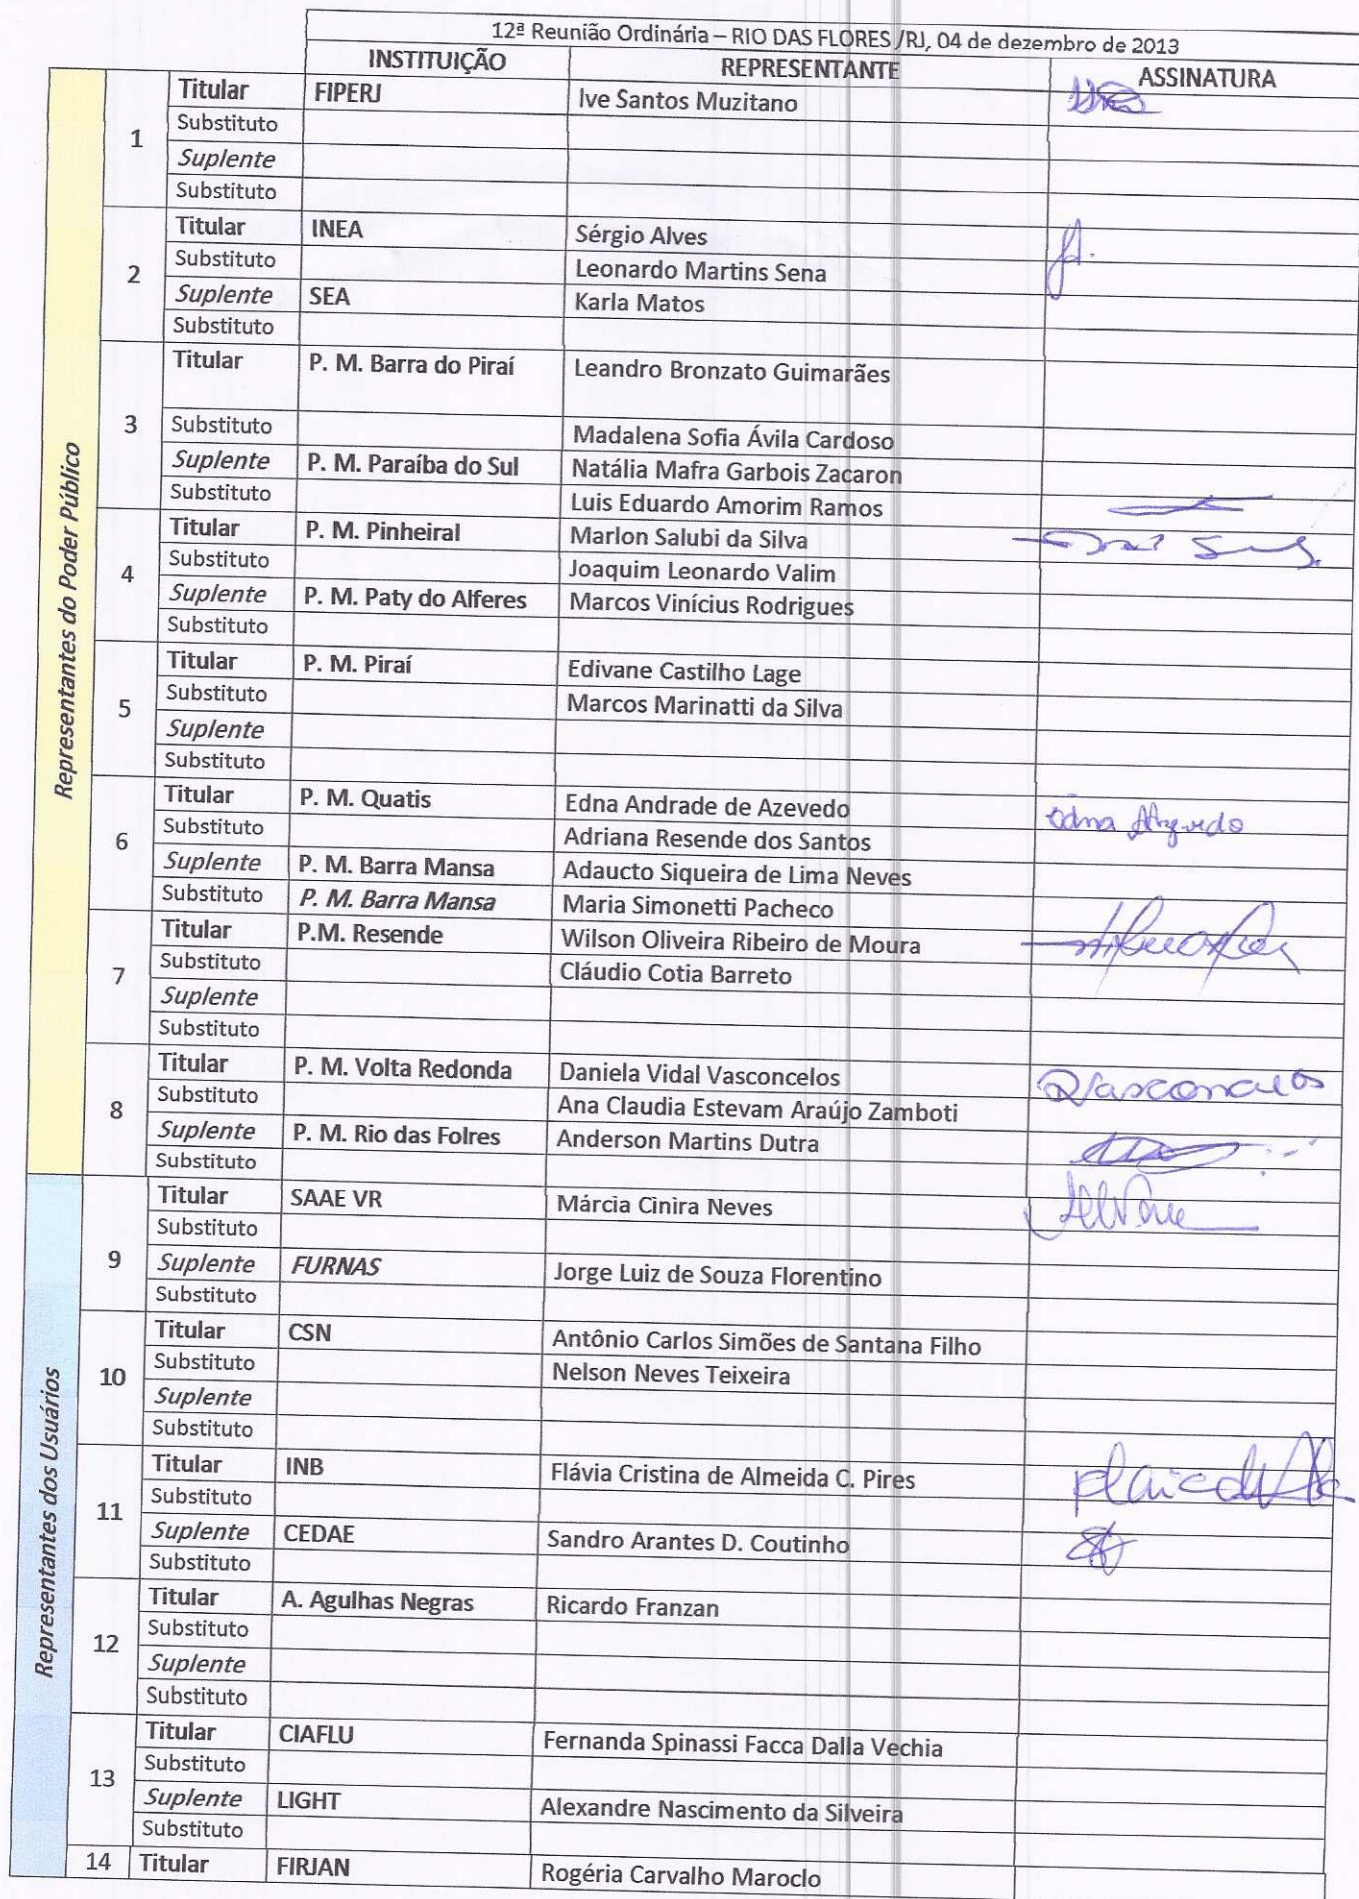 12ª Reunião Ordinária – RIO DAS FLORES /RJ, 04 de dezembro de 2013
INSTITUIÇÃO REPRESENTANTE ASSINATURA
Representantes do Poder Público
1 Titular FIPERJ Ive Santos Muzitano
Substituto
Suplente
Substituto
2 Titular INEA Sérgio Alves
Substituto Leonardo Martins Sena
Suplente SEA Karla Matos
Substituto
3 Titular P. M. Barra do Piraí Leandro Bronzato Guimarães
Substituto Madalena Sofia Ávila Cardoso
Suplente P. M. Paraíba do Sul Natália Mafra Garbois Zacaron
Substituto Luis Eduardo Amorim Ramos
4 Titular P. M. Pinheiral Marlon Salubi da Silva
Substituto Joaquim Leonardo Valim
Suplente P. M. Paty do Alferes Marcos Vinícius Rodrigues
Substituto
5 Titular P. M. Piraí Edivane Castilho Lage
Substituto Marcos Marinatti da Silva
Suplente
Substituto
6 Titular P. M. Quatis Edna Andrade de Azevedo Edna Azevedo
Substituto Adriana Resende dos Santos
Suplente P. M. Barra Mansa Adaucto Siqueira de Lima Neves
Substituto P. M. Barra Mansa Maria Simonetti Pacheco
7 Titular P.M. Resende Wilson Oliveira Ribeiro de Moura
Substituto Cláudio Cotia Barreto
Suplente
Substituto
8 Titular P. M. Volta Redonda Daniela Vidal Vasconcelos DVasconcelos
Substituto Ana Claudia Estevam Araújo Zamboti
Suplente P. M. Rio das Folres Anderson Martins Dutra
Substituto
Representantes dos Usuários
9 Titular SAAE VR Márcia Cinira Neves
Substituto
Suplente FURNAS Jorge Luiz de Souza Florentino
Substituto
10 Titular CSN Antônio Carlos Simões de Santana Filho
Substituto Nelson Neves Teixeira
Suplente
Substituto
11 Titular INB Flávia Cristina de Almeida C. Pires
Substituto
Suplente CEDAE Sandro Arantes D. Coutinho
Substituto
12 Titular A. Agulhas Negras Ricardo Franzan
Substituto
Suplente
Substituto
13 Titular CIAFLU Fernanda Spinassi Facca Dalla Vechia
Substituto
Suplente LIGHT Alexandre Nascimento da Silveira
Substituto
14 Titular FIRJAN Rogéria Carvalho Maroclo